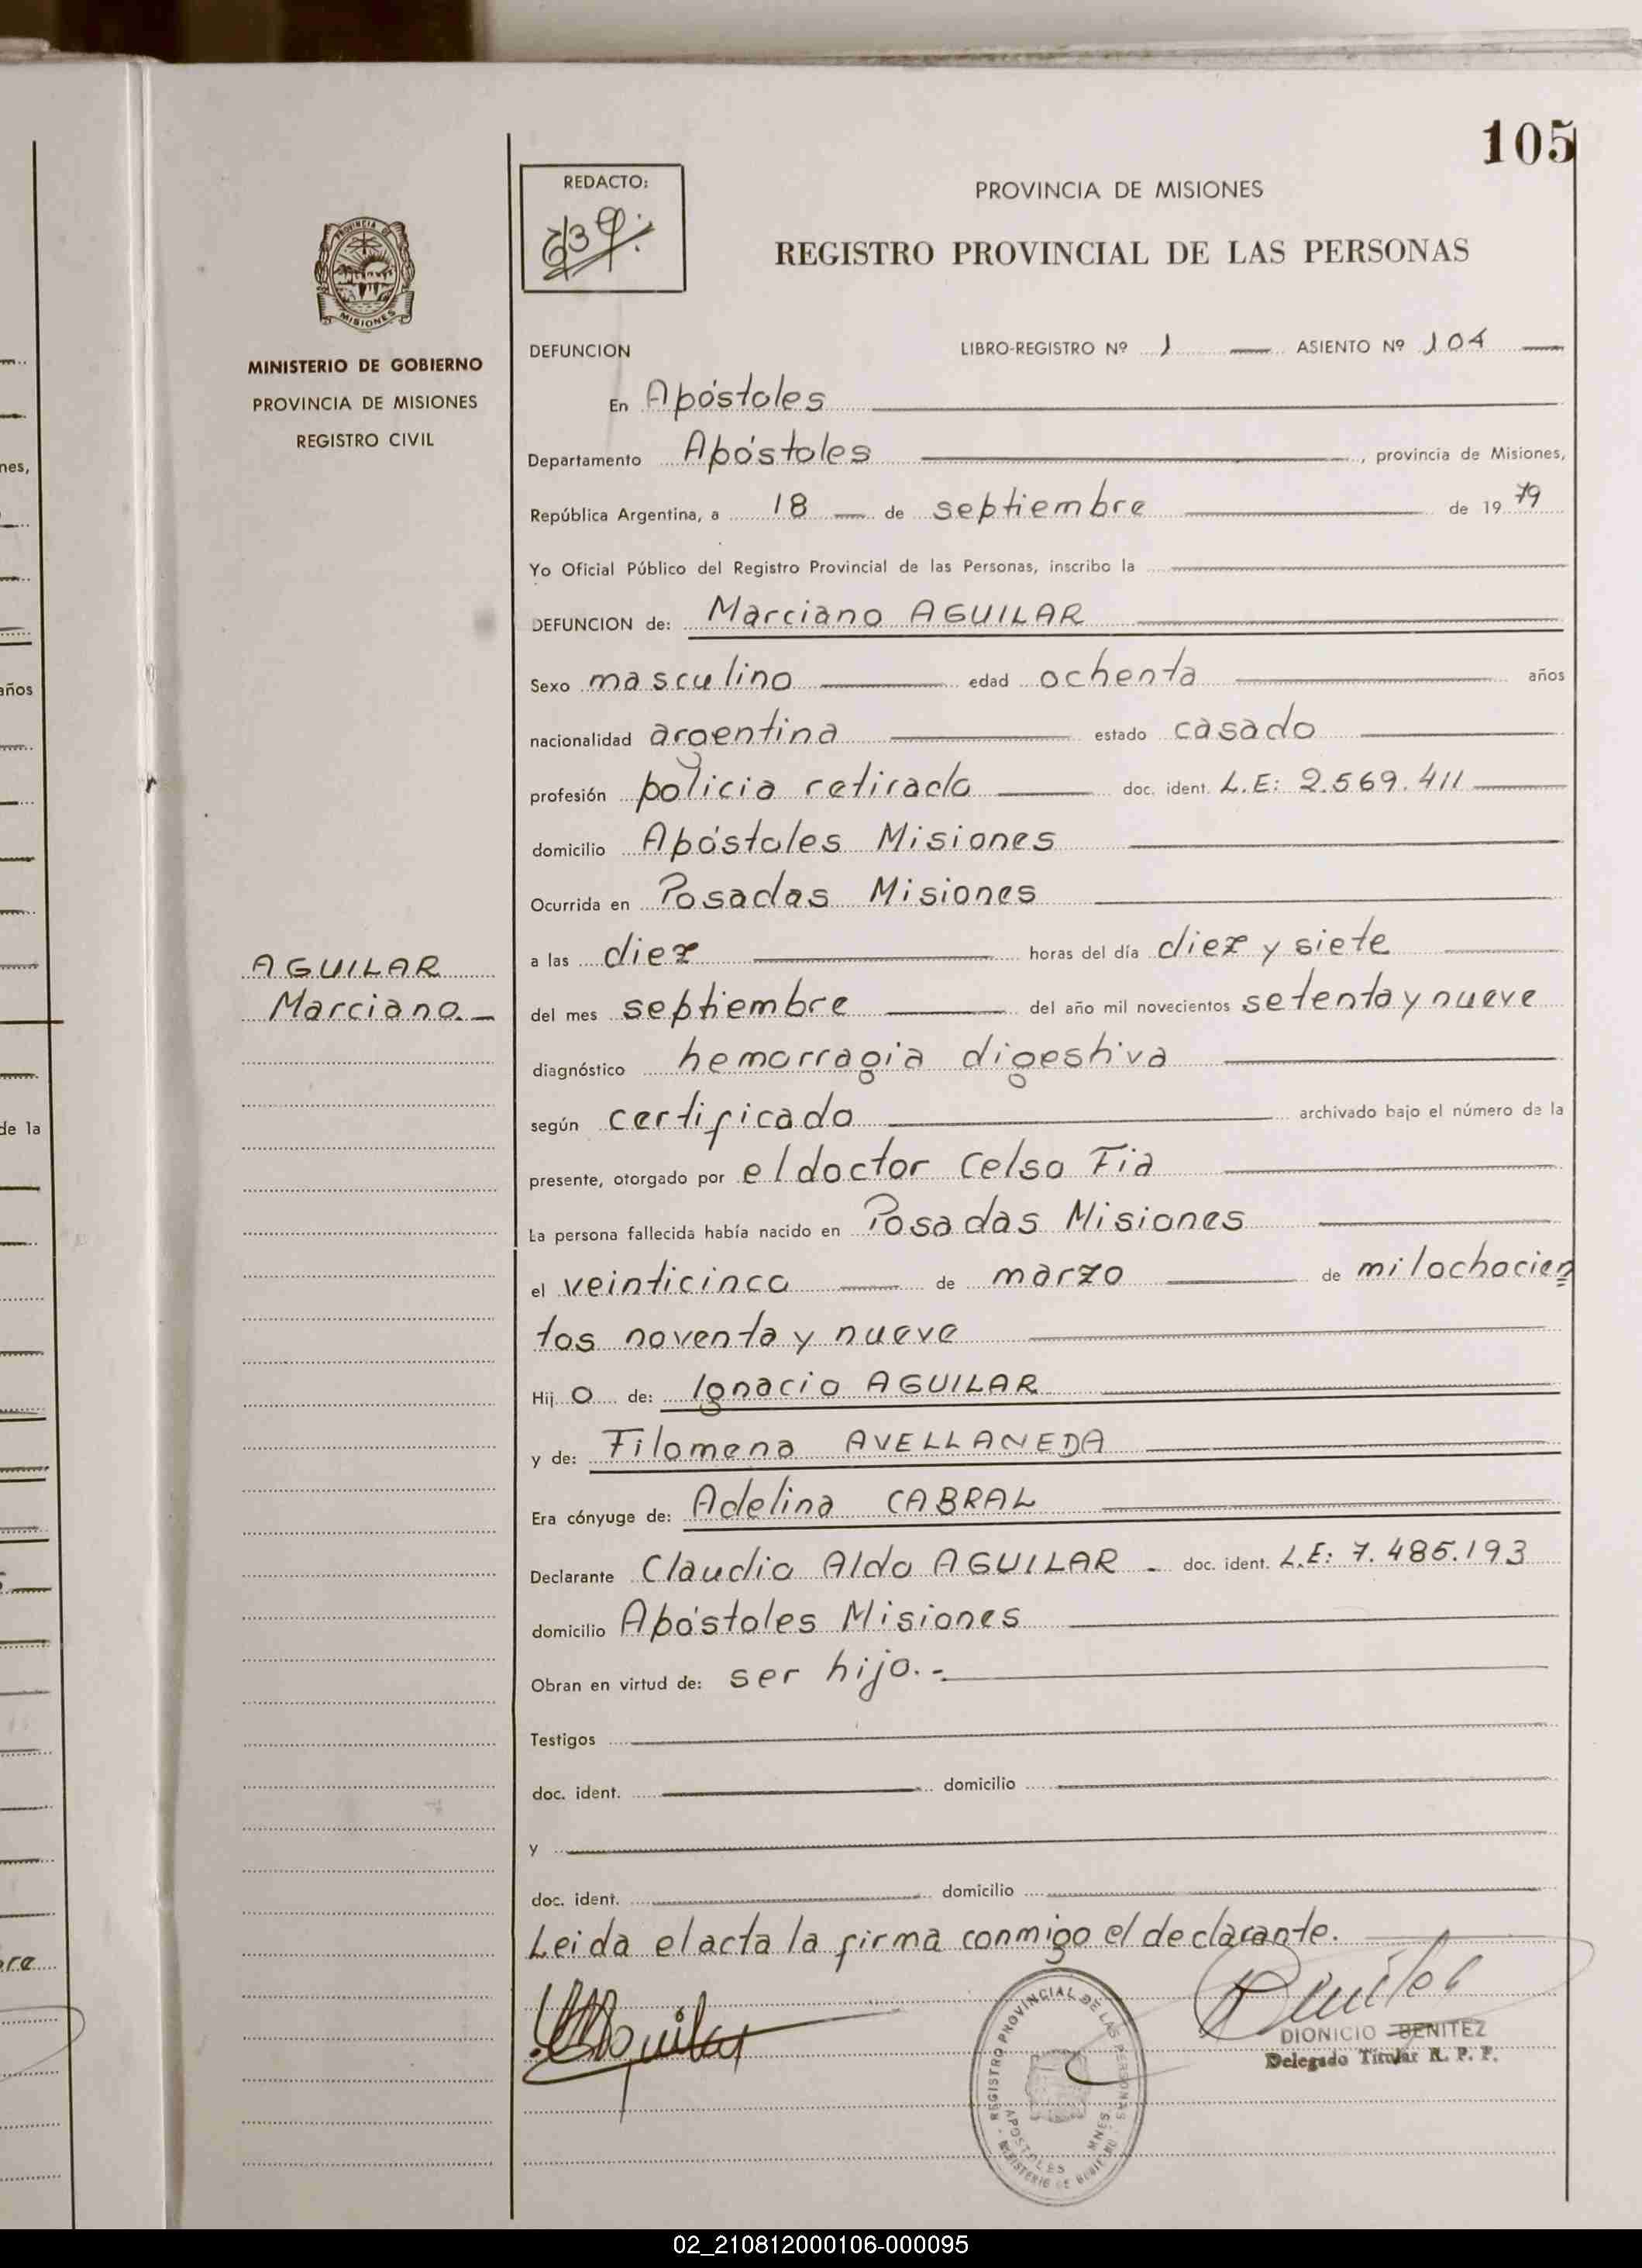 105
REDACTO:
PROVINCIA DE MISIONES
REGISTRO PROVINCIAL DE LAS PERSONAS
PROVINCIA DE
MISIONES
MINISTERIO DE GOBIERNO
PROVINCIA DE MISIONES
REGISTRO CIVIL
DEFUNCION LIBRO-REGISTRO Nº 1 ASIENTO Nº 104
En Apóstoles
Departamento Apóstoles, provincia de Misiones,
República Argentina, a 18 de septiembre de 19 79
Yo Oficial Público del Registro Provincial de las Personas, inscribo la
DEFUNCION de: Marciano AGUILAR
Sexo masculino edad ochenta años
nacionalidad argentina estado casado
profesión policia retirado doc. ident. L.E: 2.569.411
domicilio Apóstoles Misiones
Ocurrida en Posadas Misiones
a las diez horas del día diez y siete
AGUILAR
Marciano.
del mes septiembre del año mil novecientos setenta y nueve
diagnóstico hemorragia digestiva
según certificado archivado bajo el número de la
presente, otorgado por el doctor Celso Fia
La persona fallecida había nacido en Posadas Misiones
el veinticinco de marzo de mil ochocien
tos noventa y nueve
Hij o de: Ignacio AGUILAR
y de: Filomena AVELLANEDA
Era cónyuge de: Adelina CABRAL
Declarante Claudio Aldo AGUILAR - doc. ident. L.E: 7.485.193
domicilio Apóstoles Misiones
Obran en virtud de: ser hijo.-
Testigos
doc. ident. domicilio
y
doc. ident. domicilio
Leida el acta la firma conmigo el declarante.
REGISTRO PROVINCIAL DE LAS PERSONAS
APOSTOLES MNES
MINISTERIO DE GOBIERNO
DIONICIO BENITEZ
Delegado Titular R. P. P.
nes,
años
de la
bre
02_210812000106-000095